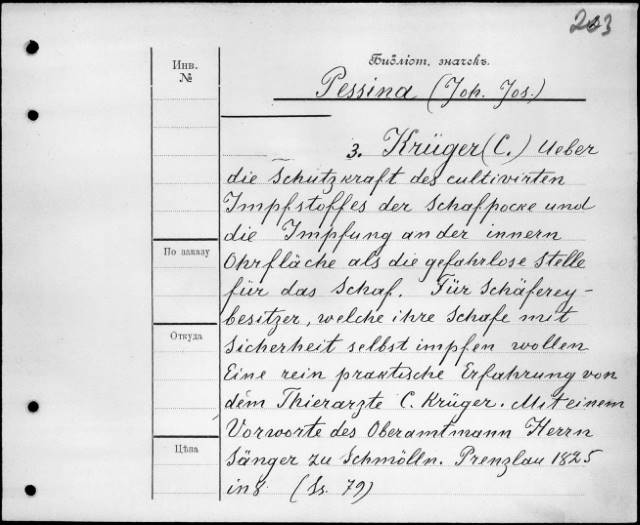 2�3
Инв.
№
Библіот. значекъ.
Pessina (Joh. Jos.)
3. Krüger (C.) Ueber
die Schutzkraft des cultivirten
Impfstoffes der Schafpocke und
die Impfung an der innern
По заказу
Ohrfläche als die gefahrlose Stelle
für das Schaf. Für Schäferey-
besitzer, welche ihre Schafe mit
Откуда
Sicherheit selbst impfen wollen
Eine rein praktische Erfahrung von
dem Thierarzte C. Krüger. Mit einem
Vorworte des Oberamtmann Herrn
Цѣна
Sänger zu Schmölln. Prenzlau 1825
in 8 (Ss. 79)